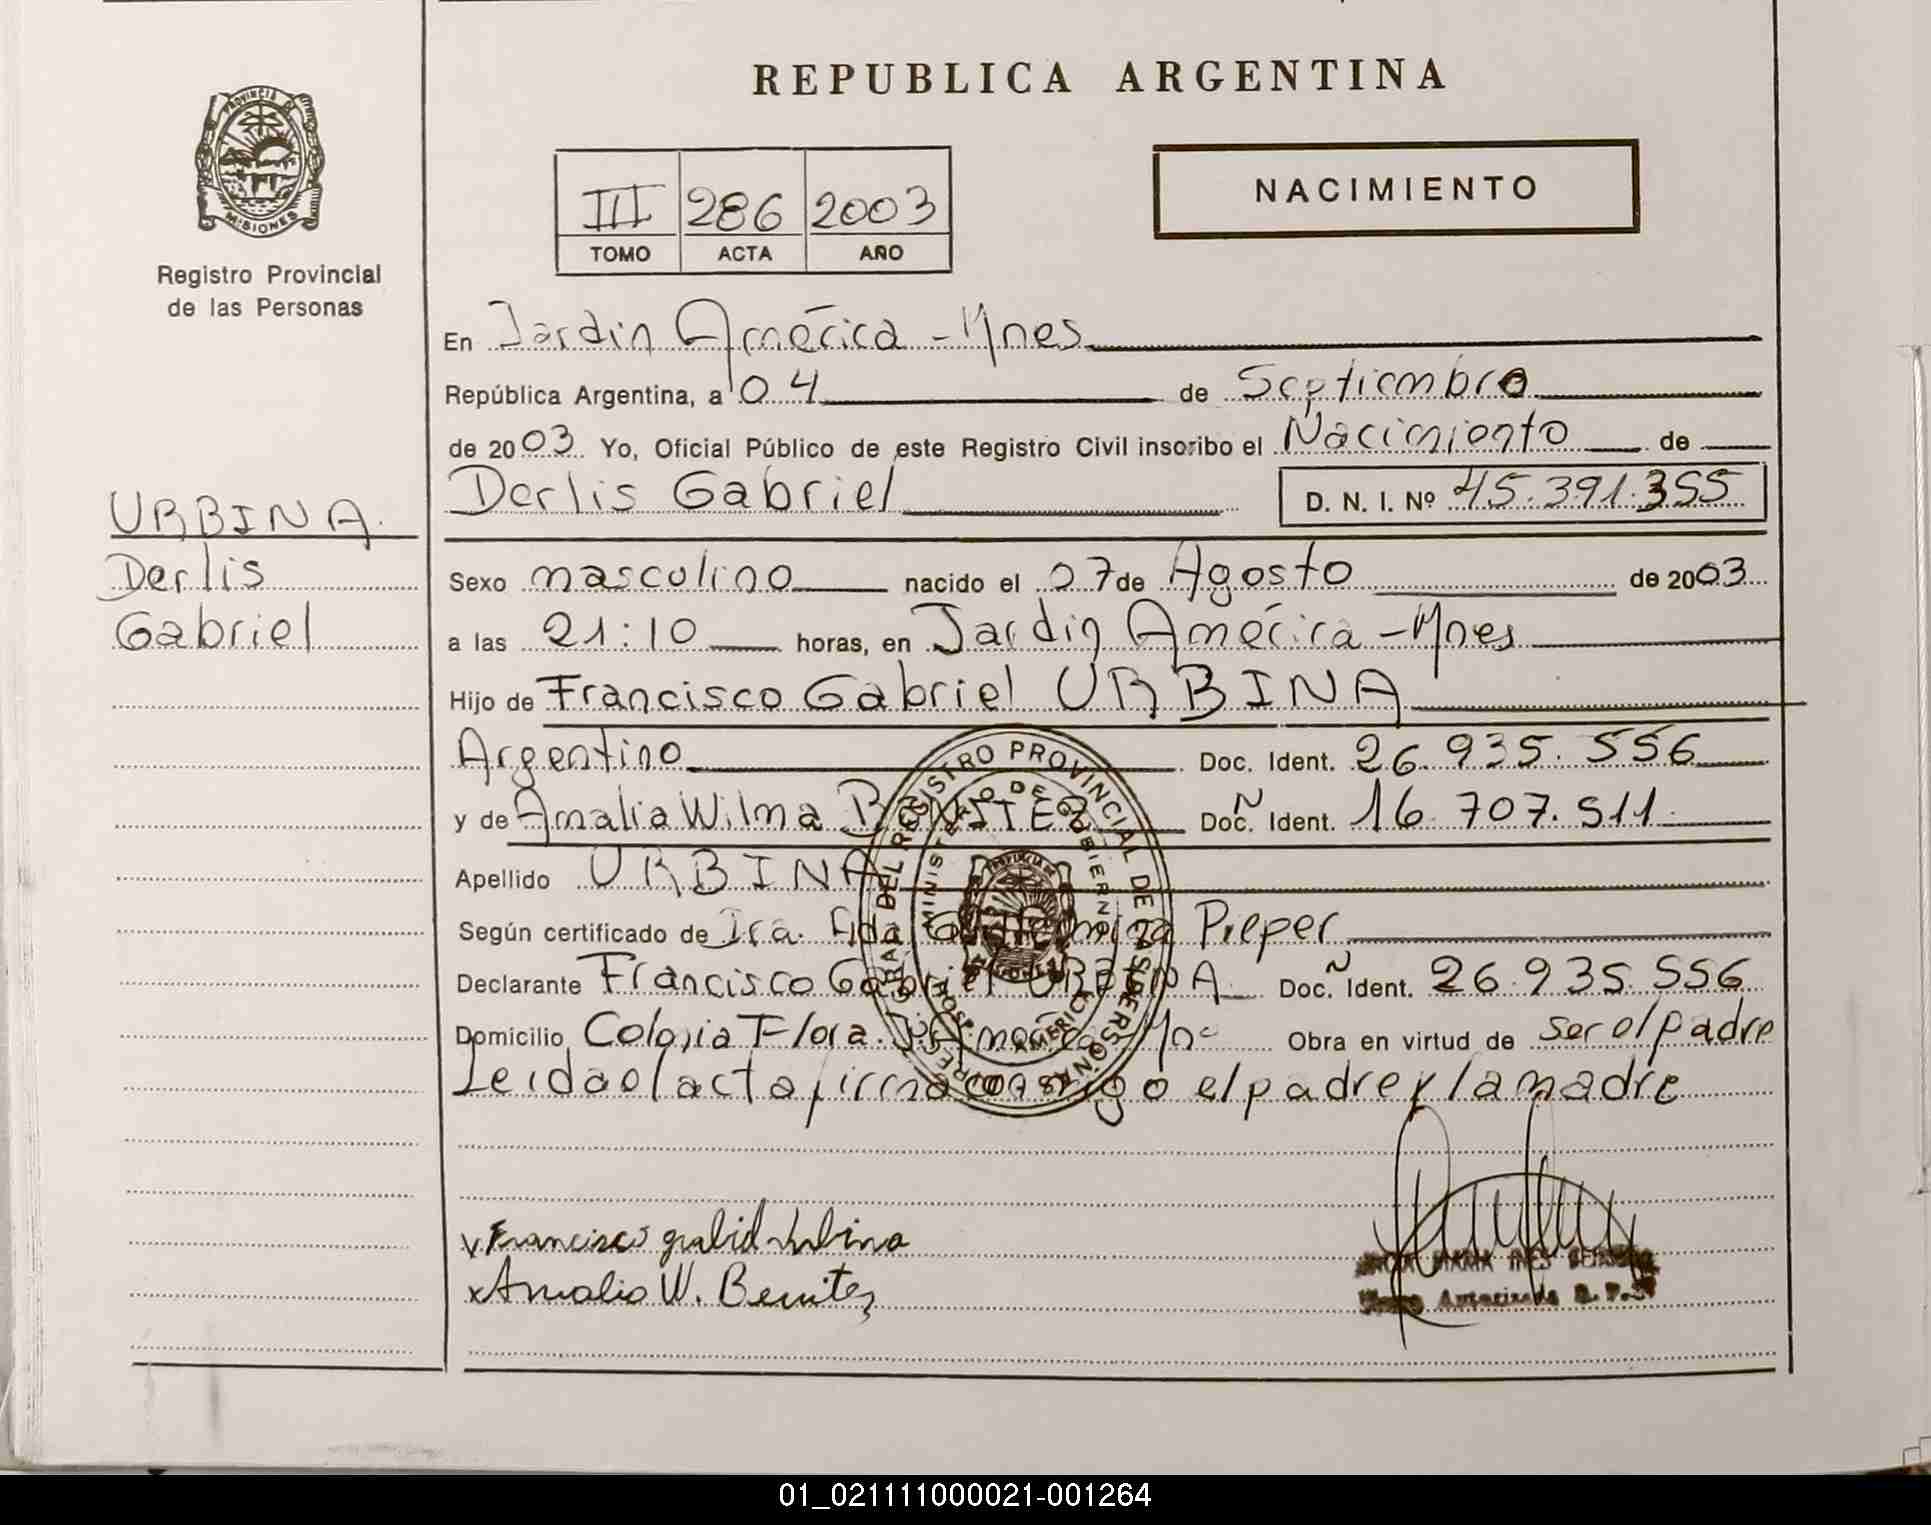 REPUBLICA ARGENTINA
PROVINCIA DE
MISIONES
Registro Provincial
de las Personas
III 286 2003
TOMO ACTA AÑO
NACIMIENTO
En Jardin América - Mnes
República Argentina, a 04 de Septiembre
de 2003 Yo, Oficial Público de este Registro Civil inscribo el Nacimiento de
Derlis Gabriel D. N. I. Nº 45.391.355
URBINA
Derlis
Gabriel
Sexo masculino nacido el 27 de Agosto de 2003
a las 21:10 horas, en Jardin América - Mnes
Hijo de Francisco Gabriel URBINA
Argentino Doc. Ident. 26.935.556
y de Amalia Wilma BENITEZ Doc. Ident. 16.707.511
Apellido URBINA
Según certificado de Dra. Pieper
Declarante Francisco Gabriel URBINA Doc. Ident. 26.935.556
Domicilio Colonia Flora. J. América Mnes Obra en virtud de ser el padre
Leida el acta firma conmigo el padre y la madre
REGISTRO PROVINCIAL DE LAS PERSONAS
MINISTERIO DE GOBIERNO
Francisco gabriel Urbina
Amalia W. Benitez
01_021111000021-001264